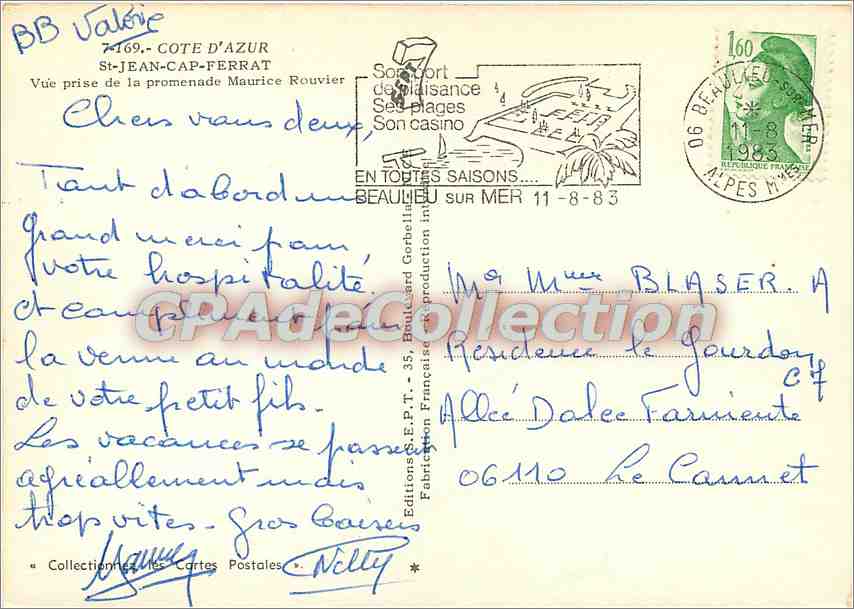 BB Valérie
7-169.- COTE D'AZUR
St-JEAN-CAP-FERRAT
Vue prise de la promenade Maurice Rouvier
Chers vous deux,
Tout d'abord un
grand merci pour
votre hospitalité
et compliment pour
la venue au monde
de votre petit fils.
Les vacances se passent
agréablement mais
trop vites - Gros baisers
Nelly
« Collectionnez les Cartes Postales »
SEPT
Son port
de plaisance
Ses plages
Son casino
EN TOUTES SAISONS....
BEAULIEU SUR MER 11-8-83
1,60
REPUBLIQUE FRANÇAISE
06 BEAULIEU-SUR-MER
11-8
1983
ALPES Mmes
Editions S.E.P.T. - 35, Boulevard Gorbella -
Fabrication Française - Reproduction
CPAdeCollection
Mr Mme BLASER. A
Résidence le Gourdon
C7
Allée Dolce Farniente
06110 Le Cannet